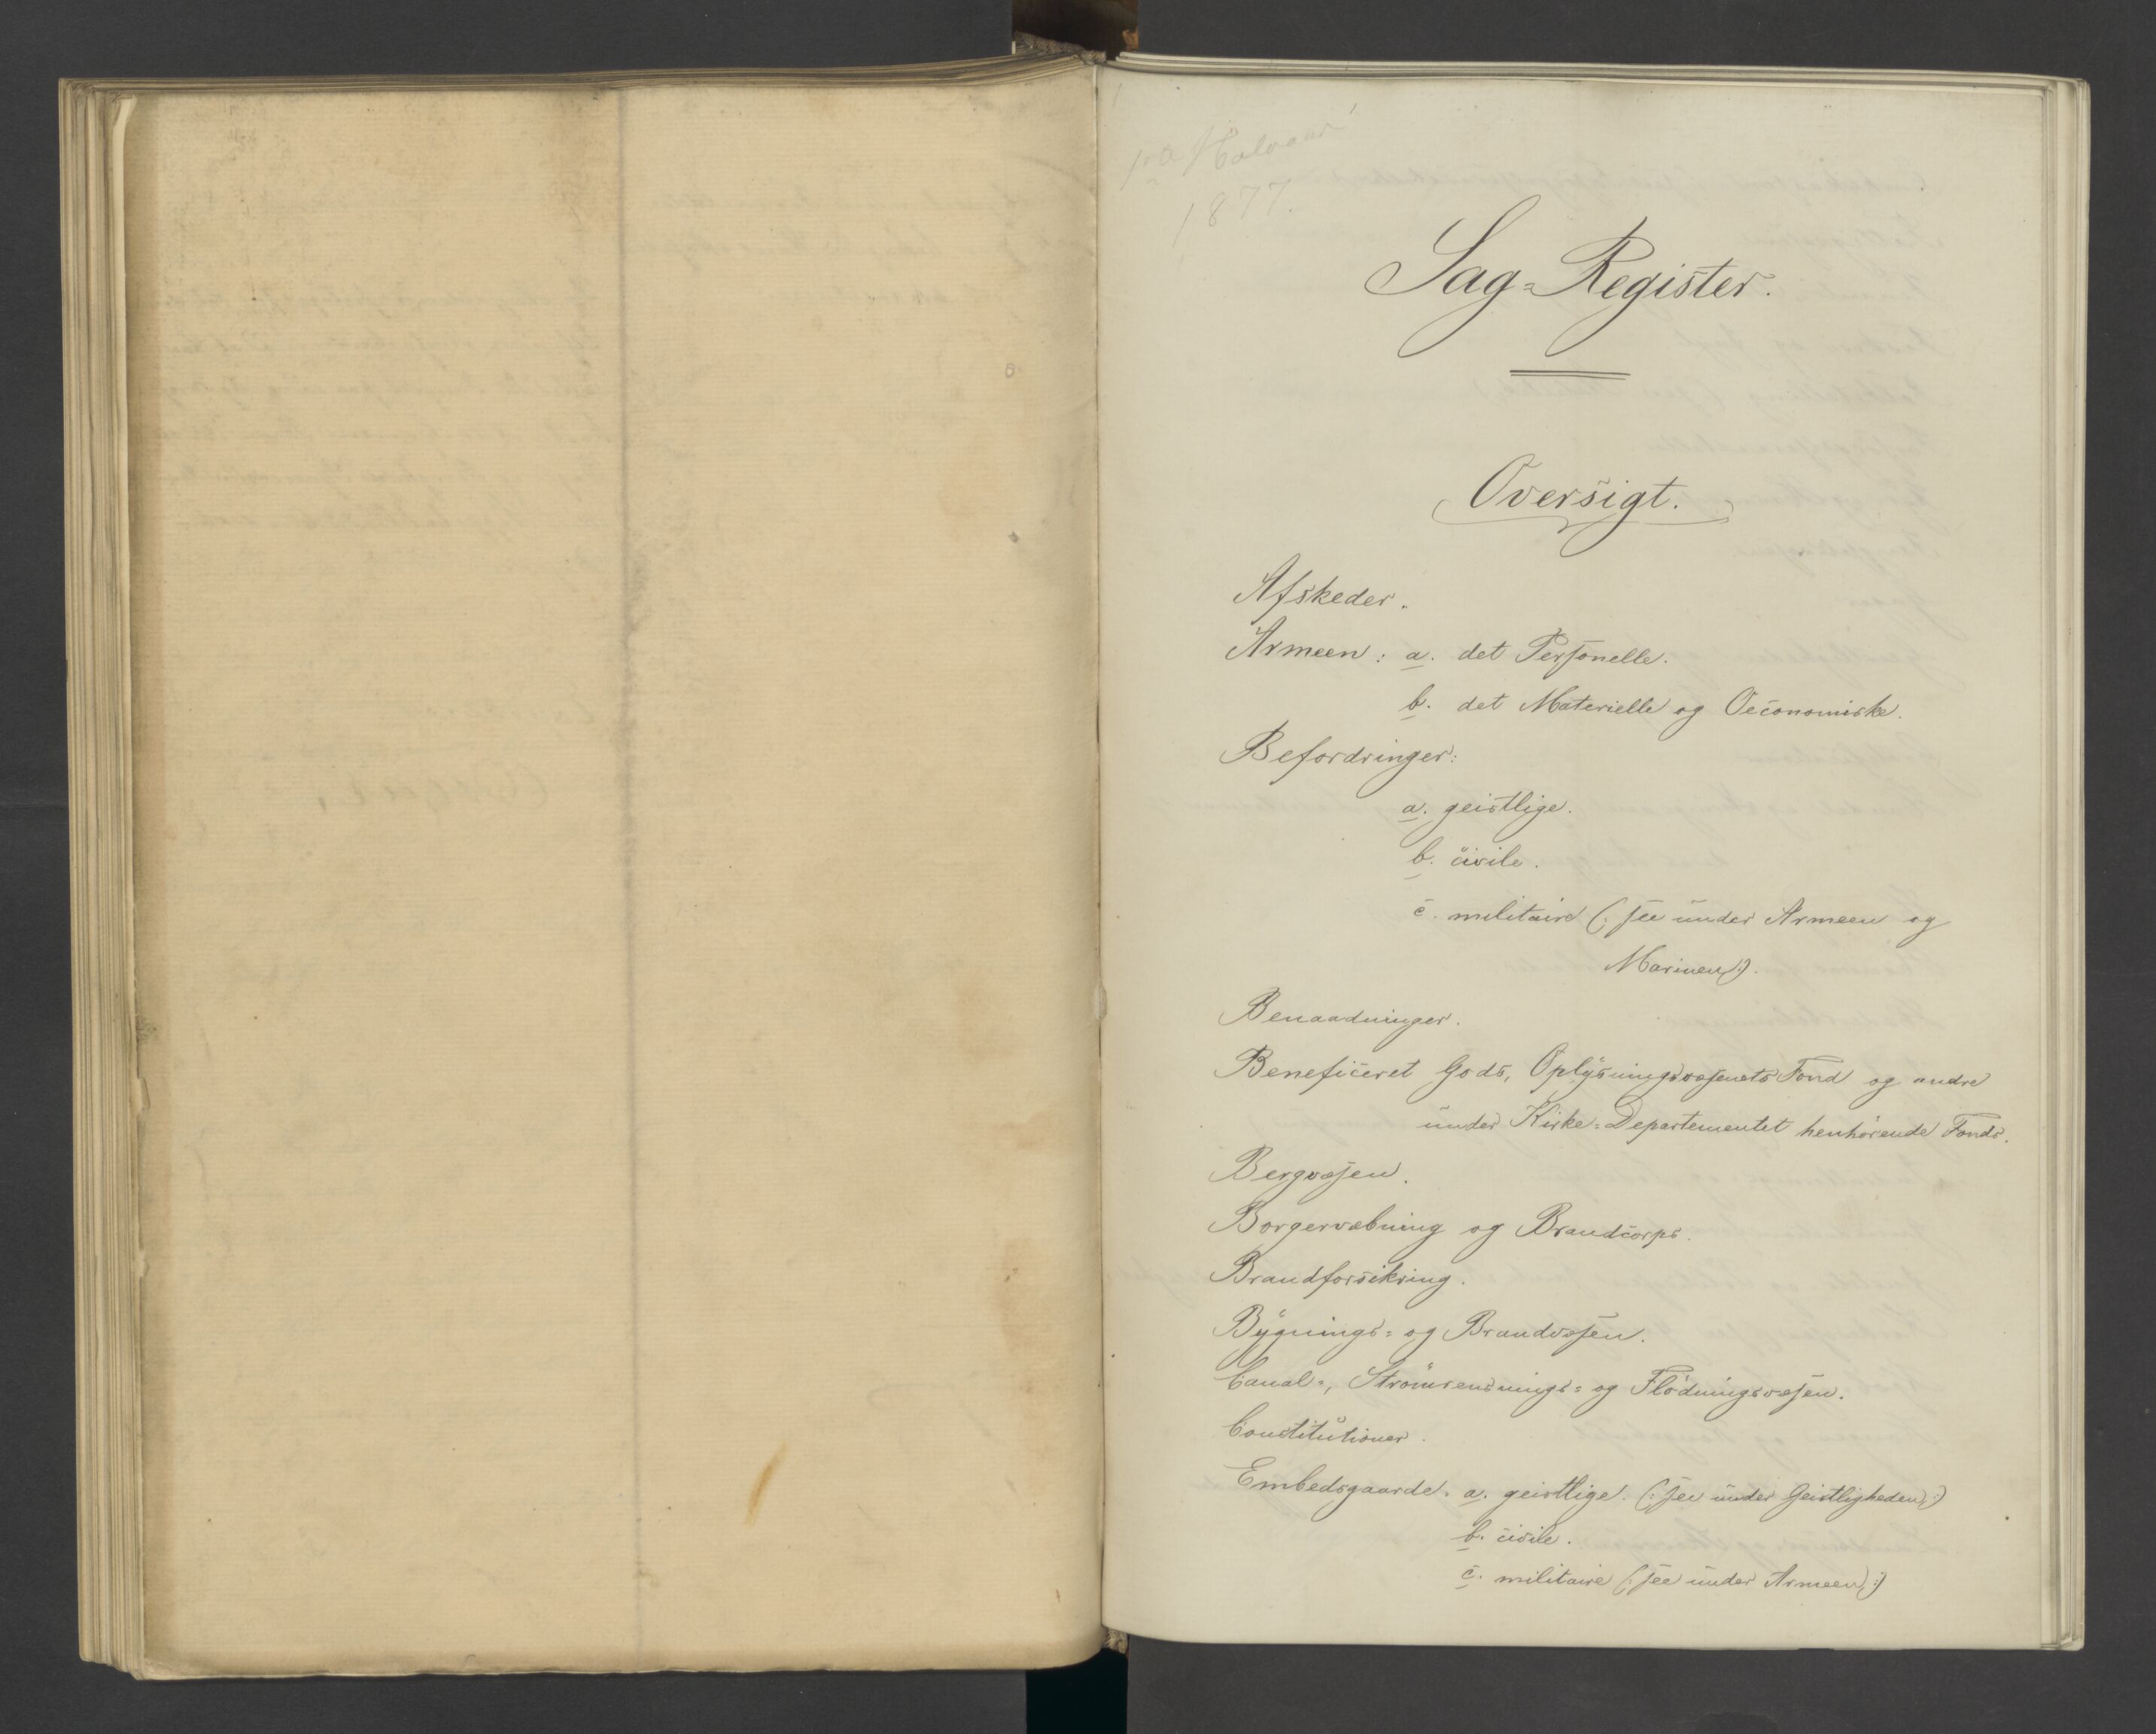 1ste Halvaar
1877.
Sag-Register.
Oversigt.
Afskeder.
Armeen: a. det Personelle.
b. det Materielle og Oeconomiske.
Befordringer:
a. geistlige.
b. civile.
c. militaire (: see under Armeen og
Marinen :).
Benaadninger.
Beneficeret Gods, Oplysningsvæsenets Fond og andre
under Kirke-Departementet henhörende Fonds.
Bergvæsen.
Borgervæbning og Brandcorps.
Brandforsikring.
Bygnings- og Brandvæsen.
Canal-, Strömrensnings- og Flödningsvæsen.
Constitutioner.
Embedsgaarde. a. geistlige. (: see under Geistligheden :)
b. civile.
c. militaire (: see under Armeen :)